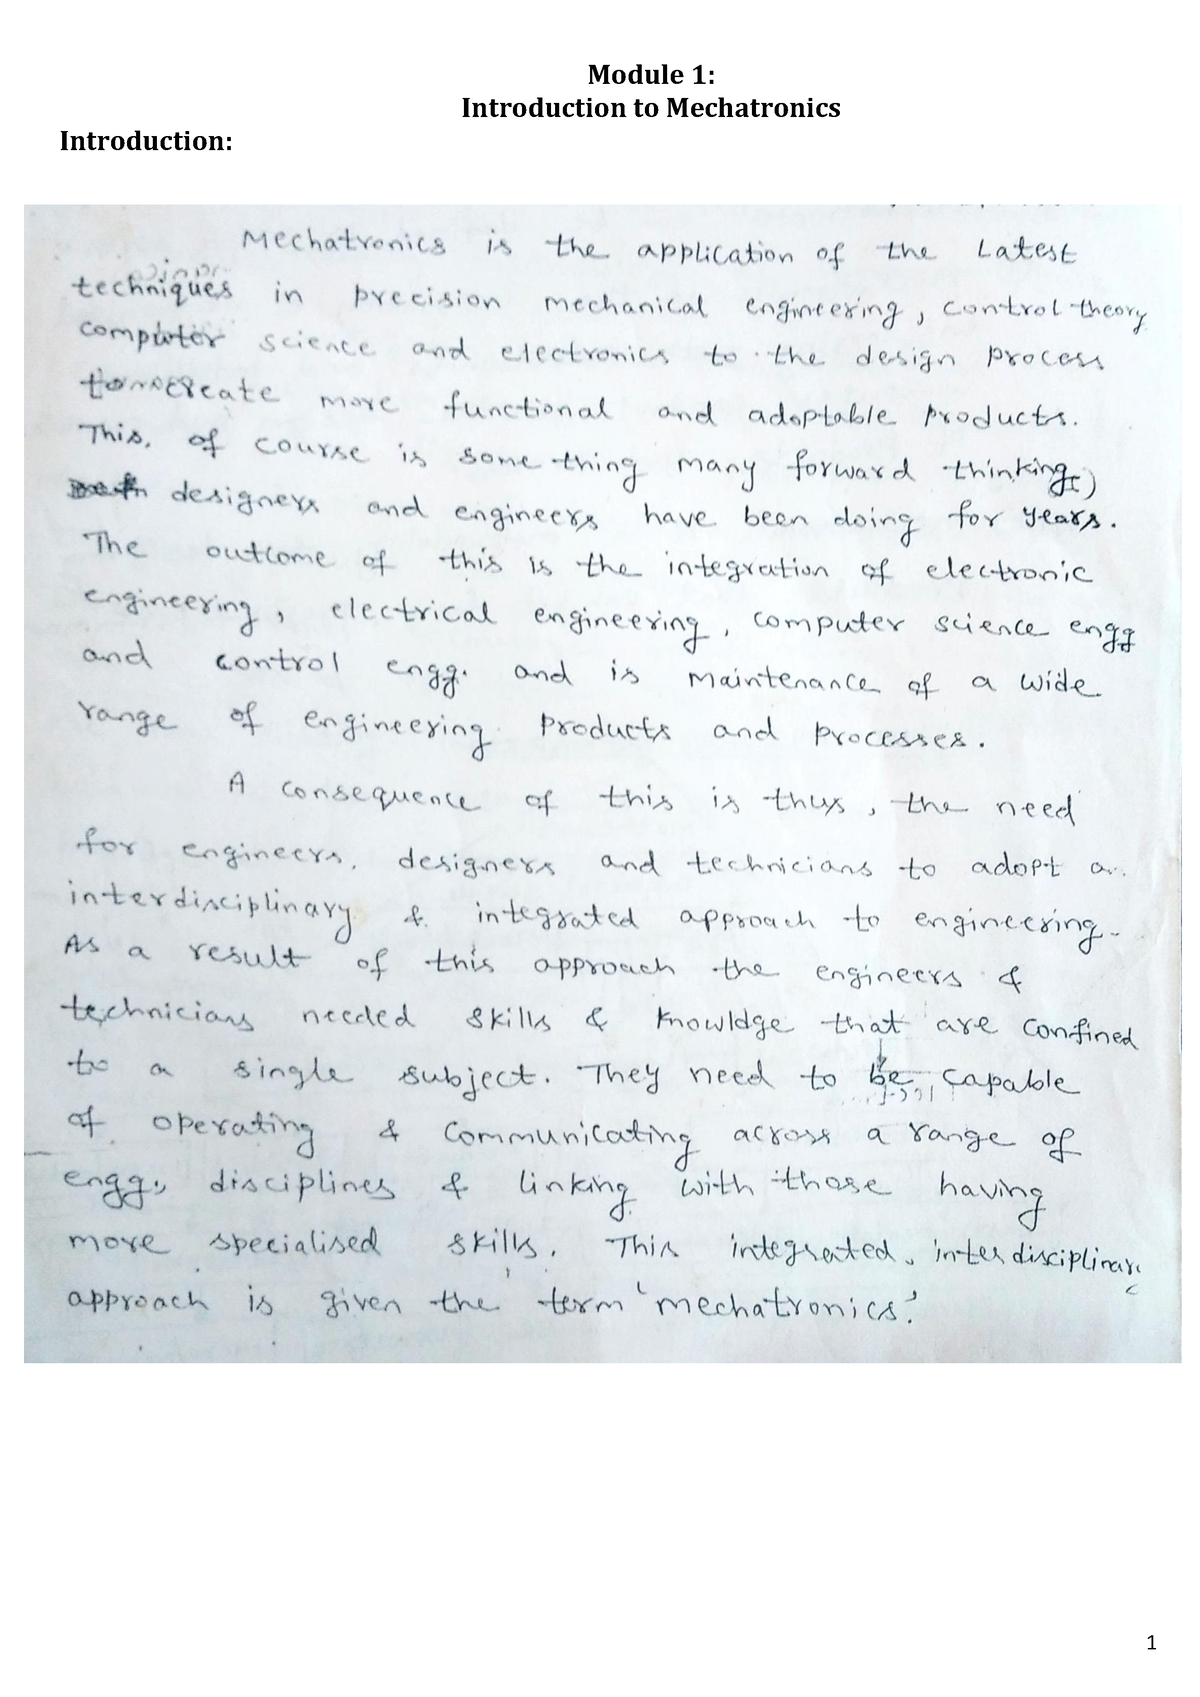 Module 1:
Introduction to Mechatronics
Introduction:
Mechatronics is the application of the Latest
techniques in precision mechanical engineering, control theory
computer science and electronics to the design process
to create more functional and adoptable products.
This, of course is some thing many forward thinking
designers and engineers have been doing for years.
The outcome of this is the integration of electronic
engineering, electrical engineering, computer science engg
and control engg. and is maintenance of a wide
range of engineering products and processes.
A consequence of this is thus, the need
for engineers, designers and technicians to adopt a
interdisciplinary & integrated approach to engineering.
As a result of this approach the engineers &
technicians needed skills & knowldge that are confined
to a single subject. They need to be capable
of operating & communicating across a range of
engg., disciplines & linking with those having
more specialised skills. This integrated, interdisciplinary
approach is given the term 'mechatronics'.
1